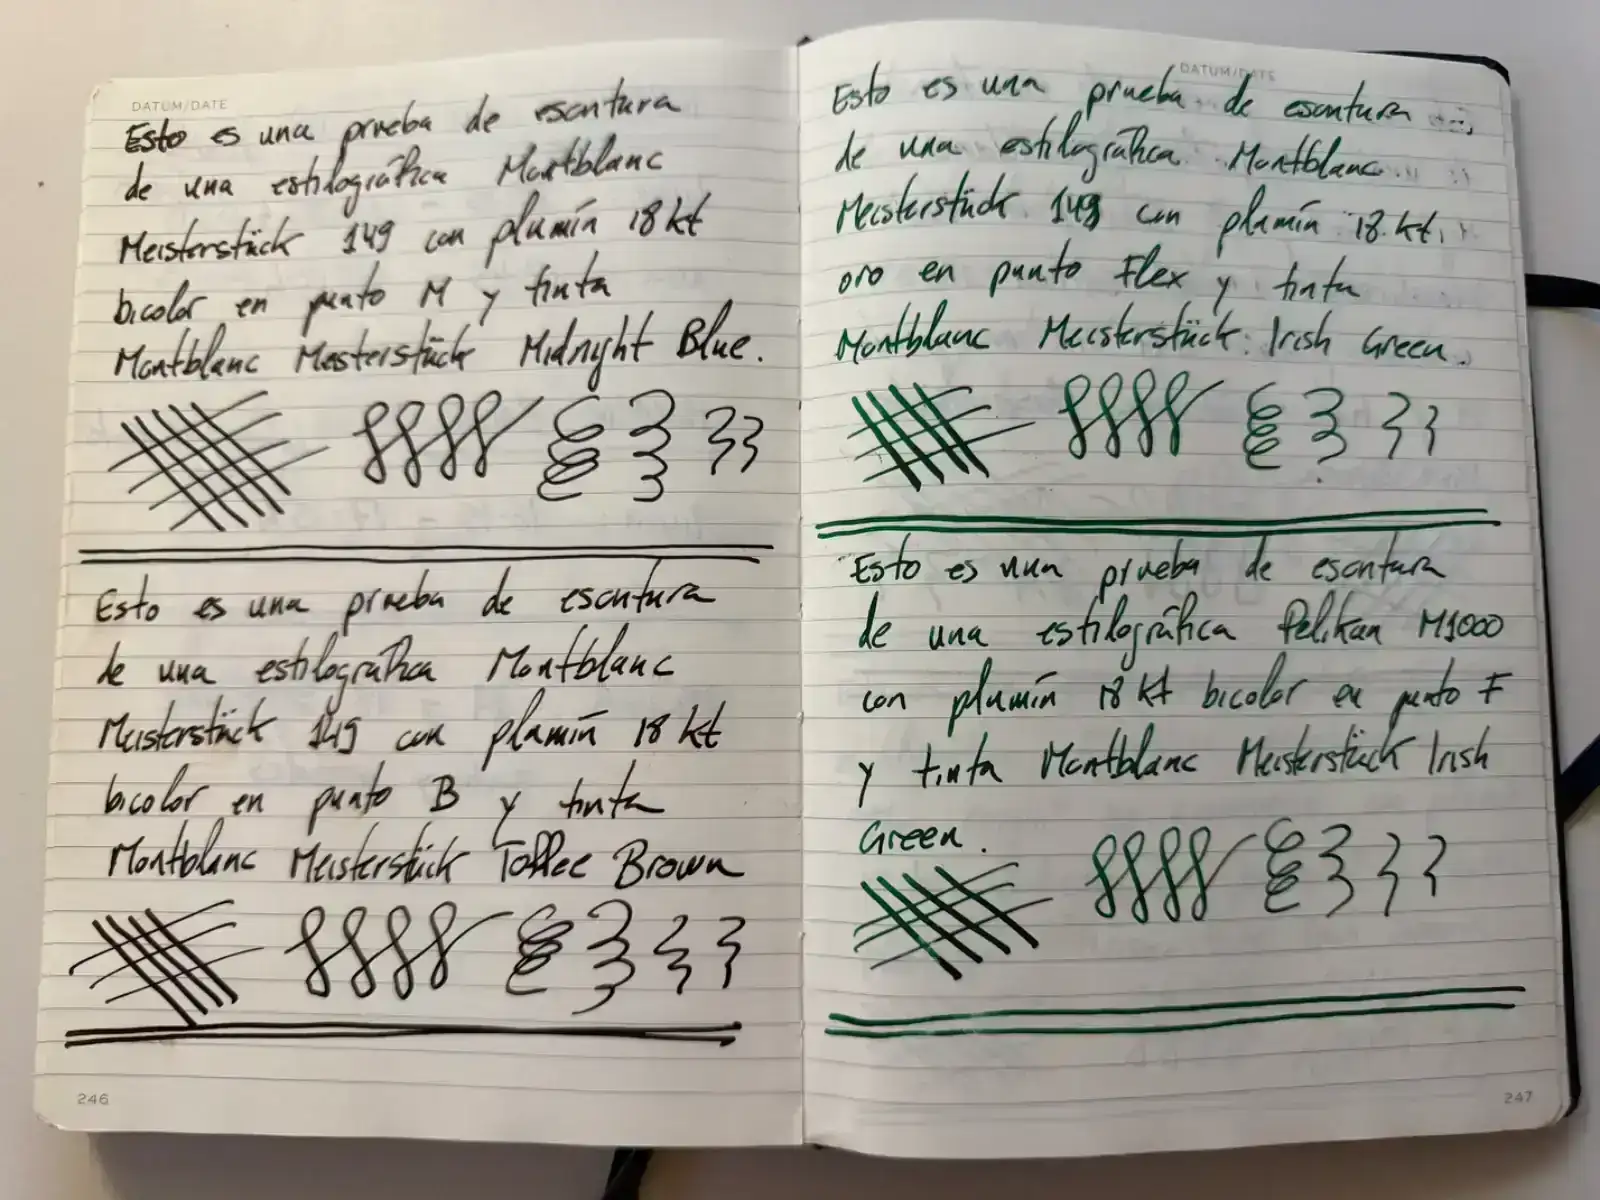 DATUM/DATE
Esto es una prueba de escritura
de una estilográfica Montblanc
Meisterstück 149 con plumín 18 kt
bicolor en punto M y tinta
Montblanc Mesterstück Midnight Blue.
Esto es una prueba de escritura
de una estilográfica Montblanc
Meisterstück 149 con plumín 18 kt
bicolor en punto B y tinta
Montblanc Meisterstück Toffee Brown
246
DATUM/DATE
Esto es una prueba de escritura
de una estilográfica Montblanc
Meisterstück 149 con plumín 18 kt.
oro en punto Flex y tinta
Montblanc Meisterstück Irish Green.
Esto es una prueba de escritura
de una estilográfica Pelikan M1000
con plumín 18 kt bicolor en punto F
y tinta Montblanc Meisterstück Irish
Green.
247